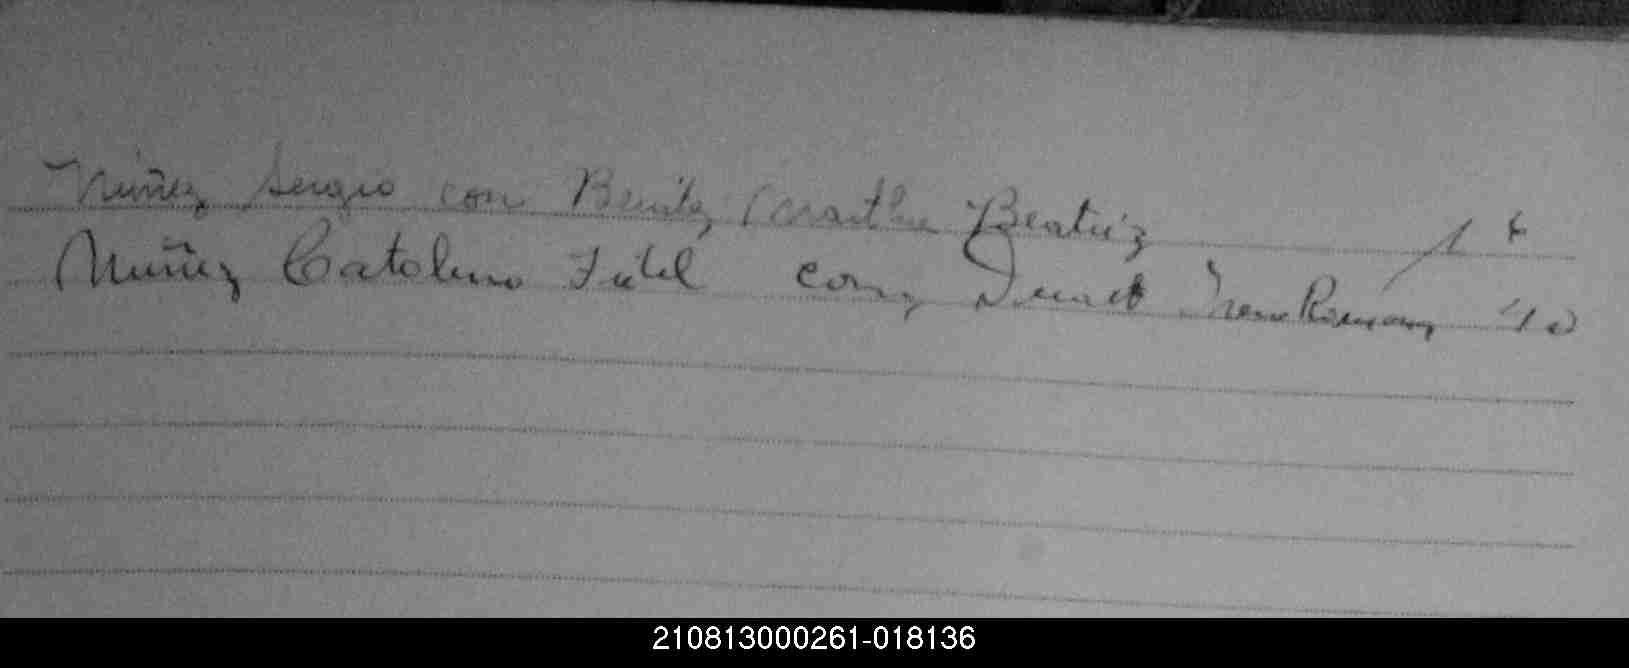 Nuñez Sergio con Benitez Beatriz 1
Nuñez Catalino Fidel con Duarte Irene Romana
210813000261-018136